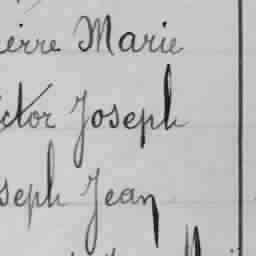 ierre Marie
ictor Joseph
seph Jean